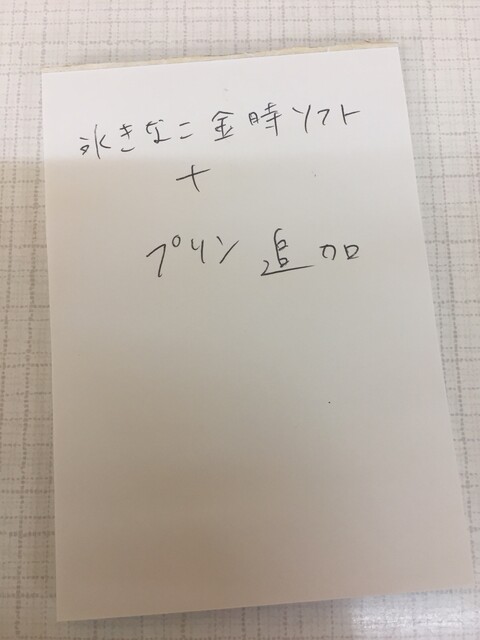 氷きなこ金時ソフト
+
プリン追加